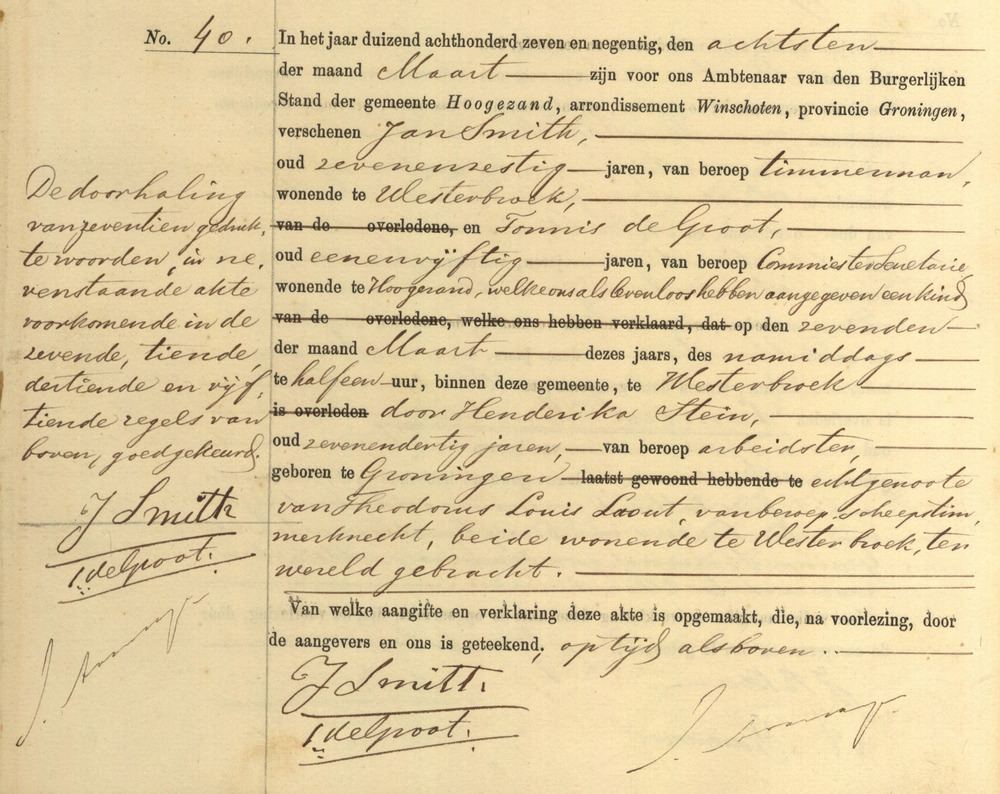 No. 40.
In het jaar duizend achthonderd zeven en negentig, den achtsten
der maand Maart zijn voor ons Ambtenaar van den Burgerlijken
Stand der gemeente Hoogezand, arrondissement Winschoten, provincie Groningen,
verschenen Jan Smith,
oud zevenenzestig jaren, van beroep timmerman,
wonende te Westerbroek,
van de overledene, en Tonnis de Groot,
oud eenenvijftig jaren, van beroep Commies ter Secretarie,
wonende te Hoogezand, welke ons als levenloos hebben aangegeven een kind
van de overledene, welke ons hebben verklaard, dat op den zevenden
der maand Maart dezes jaars, des namiddags
te half een uur, binnen deze gemeente, te Westerbroek
is overleden door Henderika Stein,
oud zevenendertig jaren, van beroep arbeidster,
geboren te Groningen laatst gewoond hebbende te echtgenoote
van Theodorus Louis Laout, van beroep scheepstim,
merknecht, beide wonende te Westerbroek, ter
wereld gebracht.
Van welke aangifte en verklaring deze akte is opgemaakt, die, na voorlezing, door
de aangevers en ons is geteekend, op tijd als boven.
J Smith.
T de Groot.
De doorhaling
van zeventien gedruk,
te woorden, in ne,
venstaande akte
voorkomende in de
zevende, tiende,
dertiende en vijf,
tiende regels van
boven, goedgekeurd.
J Smith
T de Groot.